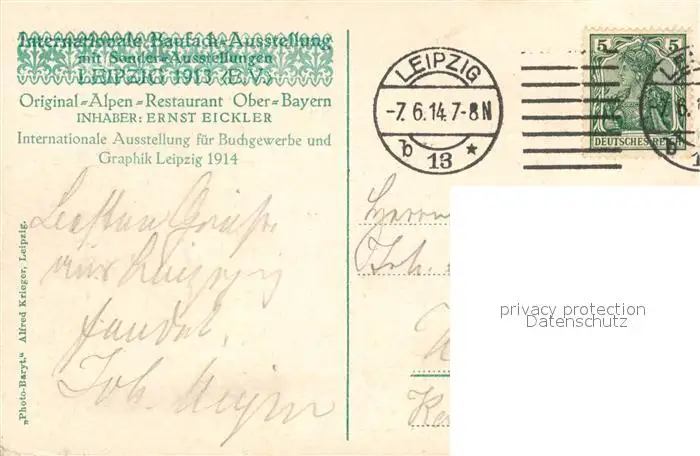 Internationale Baufach-Ausstellung
mit Sonder-Ausstellungen
LEIPZIG 1913 (E.V.)
Original-Alpen-Restaurant Ober-Bayern
INHABER: ERNST EICKLER
Internationale Ausstellung für Buchgewerbe und
Graphik Leipzig 1914
LEIPZIG
-7.6.14.7-8N
b 13 *
5 5
DEUTSCHES REICH
LEI
-7.6.
b 1
Besten Grüße
aus Leipzig
sendet
Joh.
Herrn
Joh.
"Photo-Baryt," Alfred Krieger, Leipzig.
privacy protection
Datenschutz